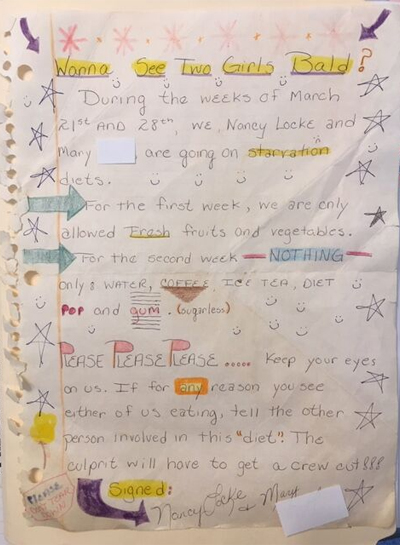 Wanna See Two Girls Bald?
During the weeks of March
21st AND 28th, WE, Nancy Locke and
Mary are going on starvation
diets.
For the first week, we are only
allowed Fresh fruits and vegetables.
For the second week — NOTHING —
only 8 WATER, COFFEE, ICE TEA, DIET
POP and gum. (sugarless)
PLEASE PLEASE PLEASE ..... Keep your eyes
on us. If for any reason you see
either of us eating, tell the other
person involved in this "diet". The
culprit will have to get a crew cut!!!
Signed:
Nancy Locke & Mary